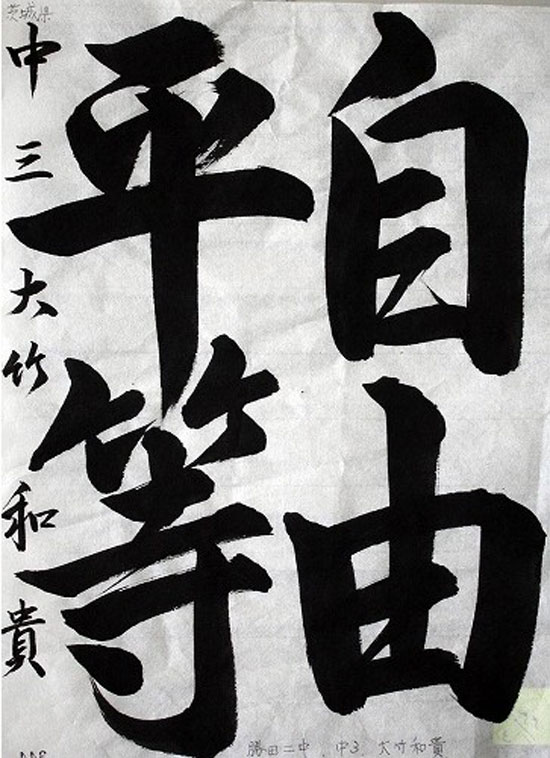 自由
平等
中三 大竹和貴
茨城県
勝田二中 中3 大竹和貴